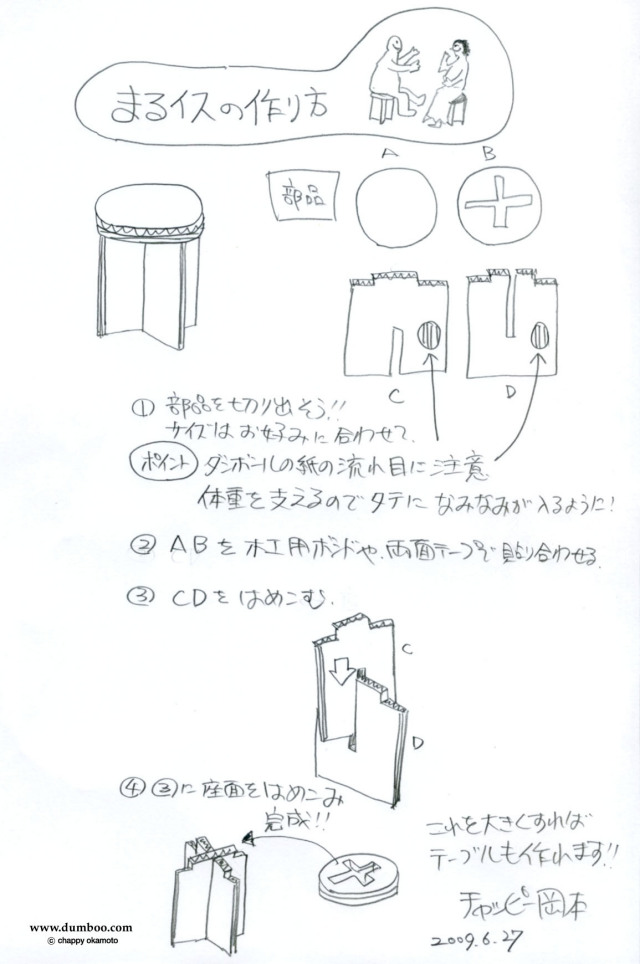 まるイスの作り方
部品
A
B
C
D
① 部品を切り出そう!!
サイズはお好みに合わせて、
ポイント ダンボールの紙の流れ目に注意
体重を支えるのでタテに なみなみが入るように!
② ABを木工用ボンドや、両面テープで貼り合わせる、
③ CDをはめこむ、
C
D
④ ③に座面をはめこみ
完成!!
これを大きくすれば
テーブルも作れます!!
チャッピー岡本
2009.6.27
www.dumboo.com
© chappy okamoto